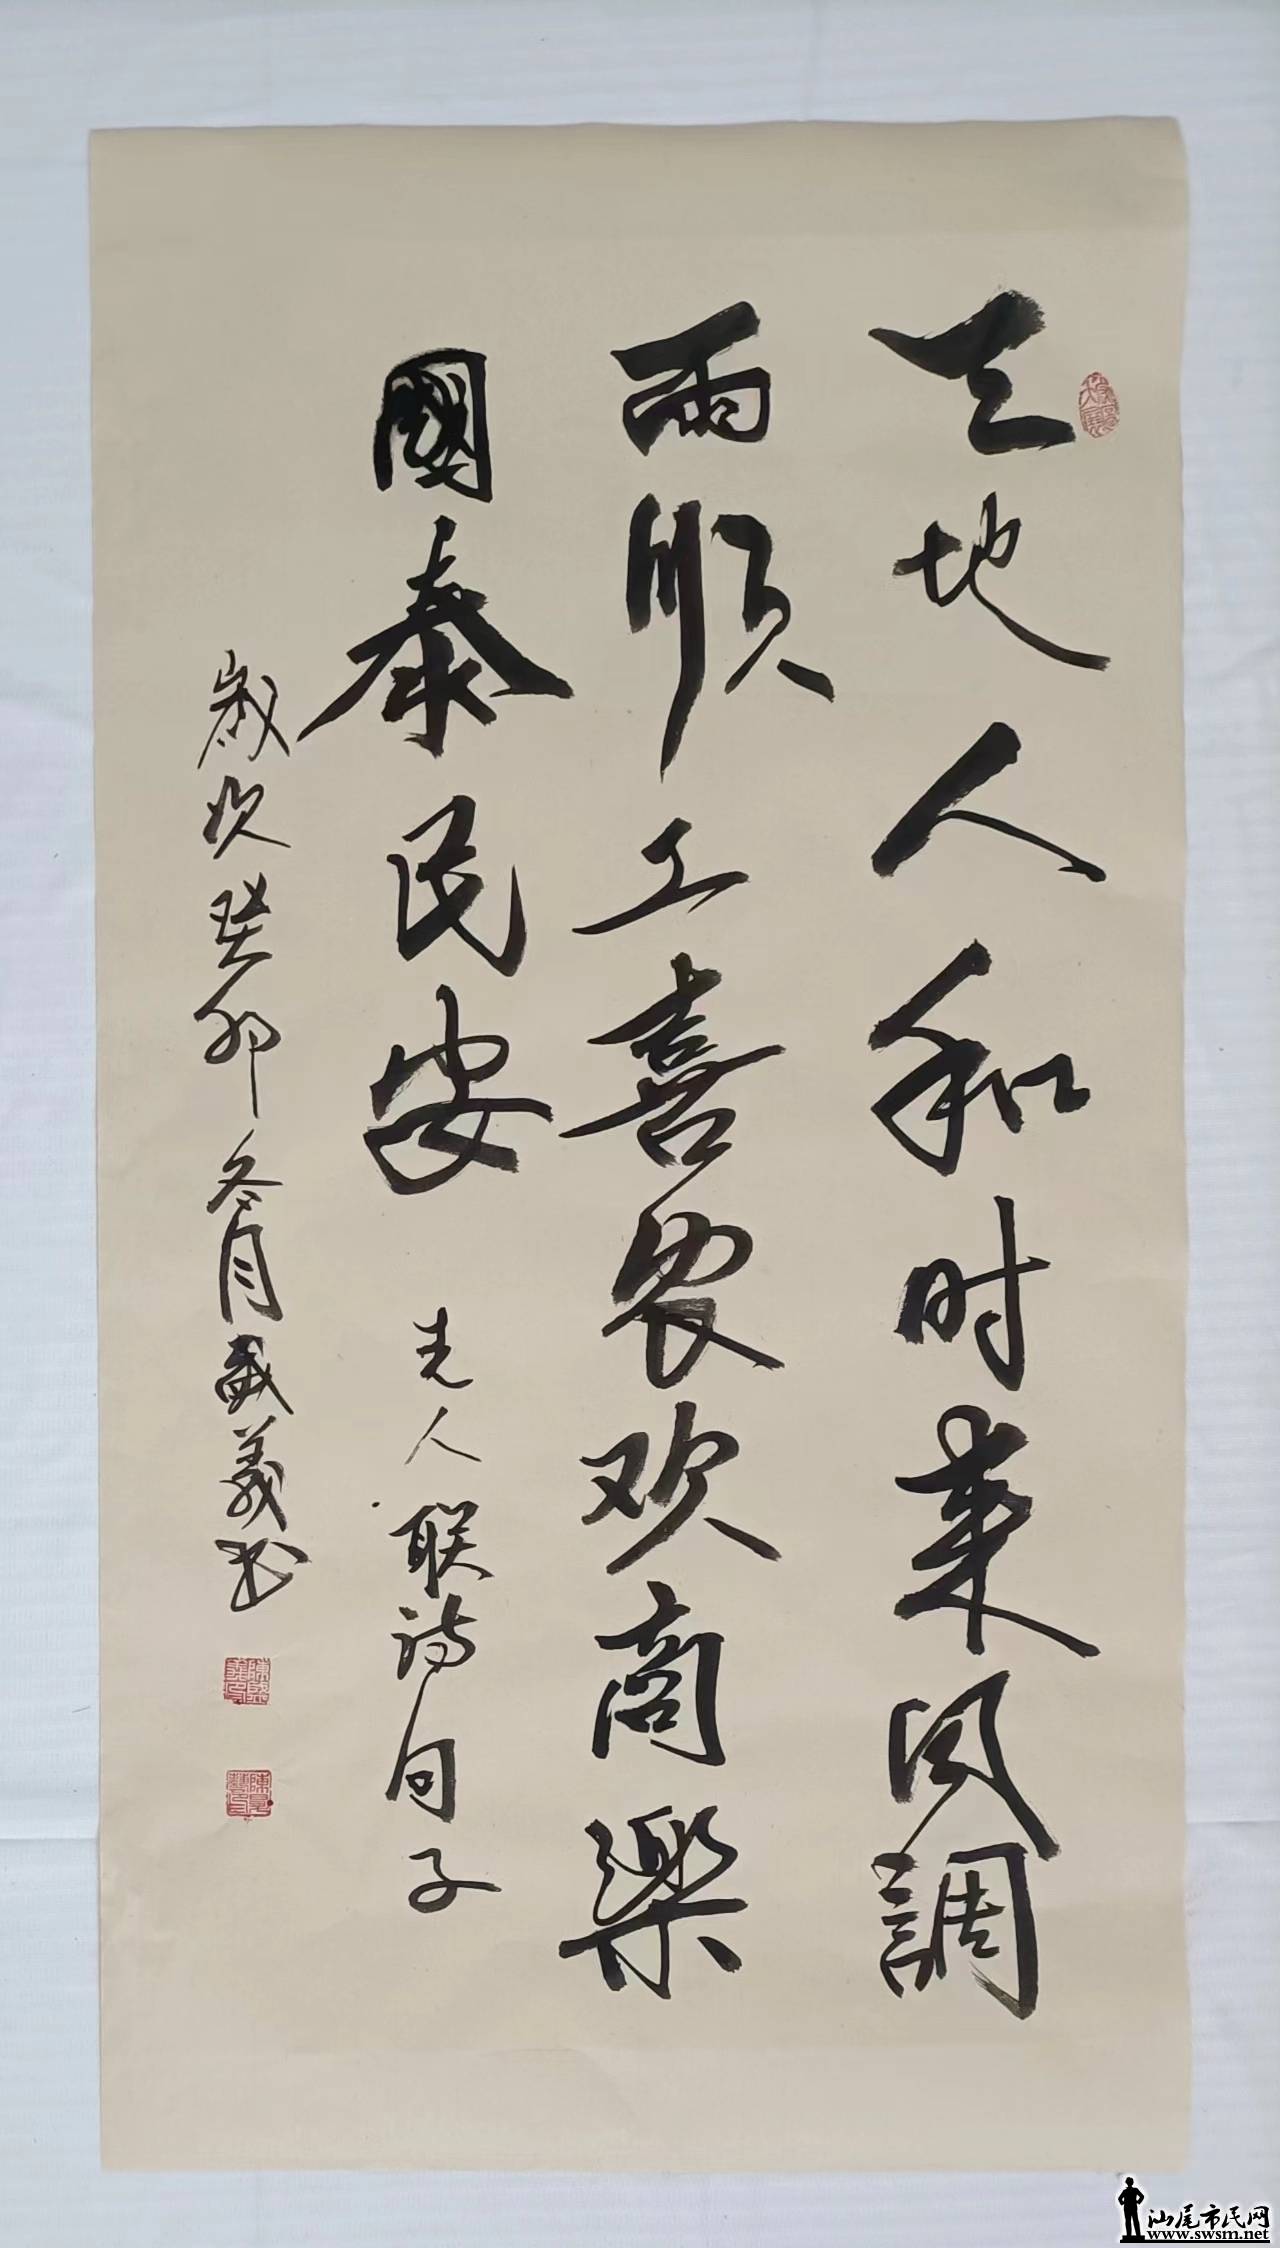 天地人和时来风調
雨顺工喜农欢商樂
國泰民安 先人联诗句子
歲次癸卯冬月盛義书
汕尾市民网
www.swsm.net